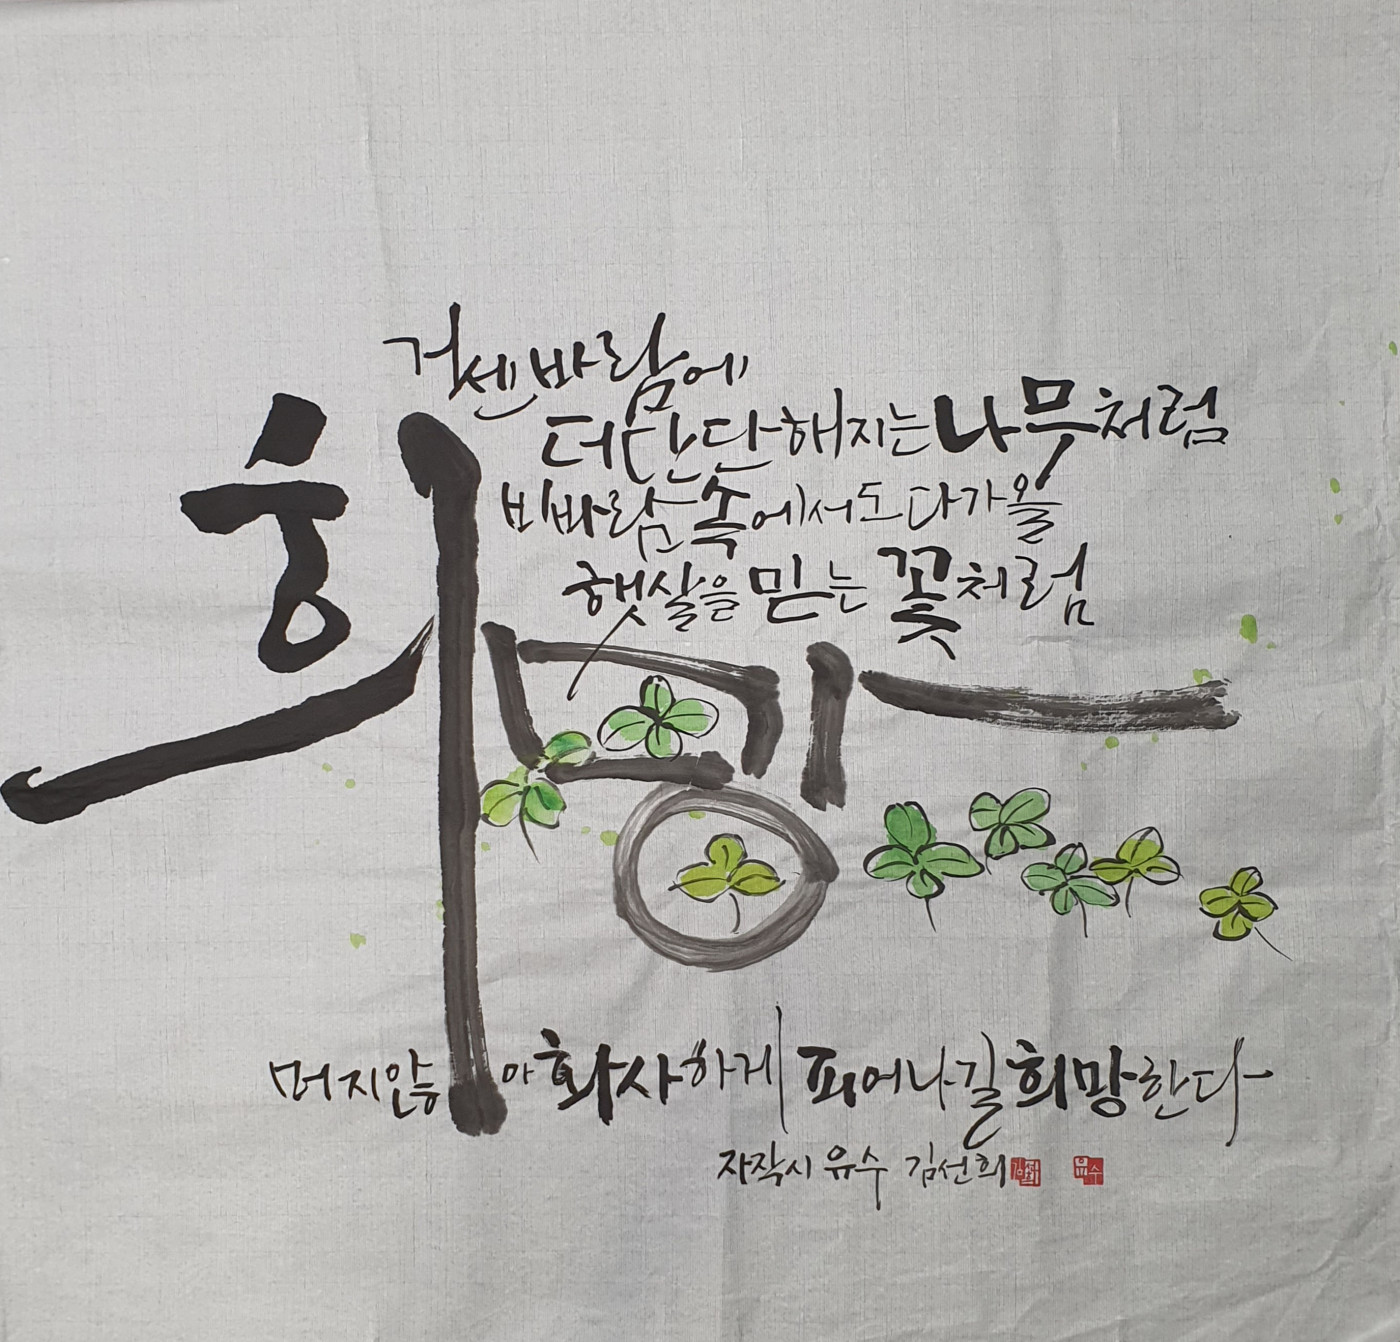 거센바람에
더 단단해지는 나무처럼
비바람 속에서도 다가올
햇살을 믿는 꽃처럼
희망
머지않아 화사하게 피어나길 희망한다
자작시 유수 김선희
김선희
유수